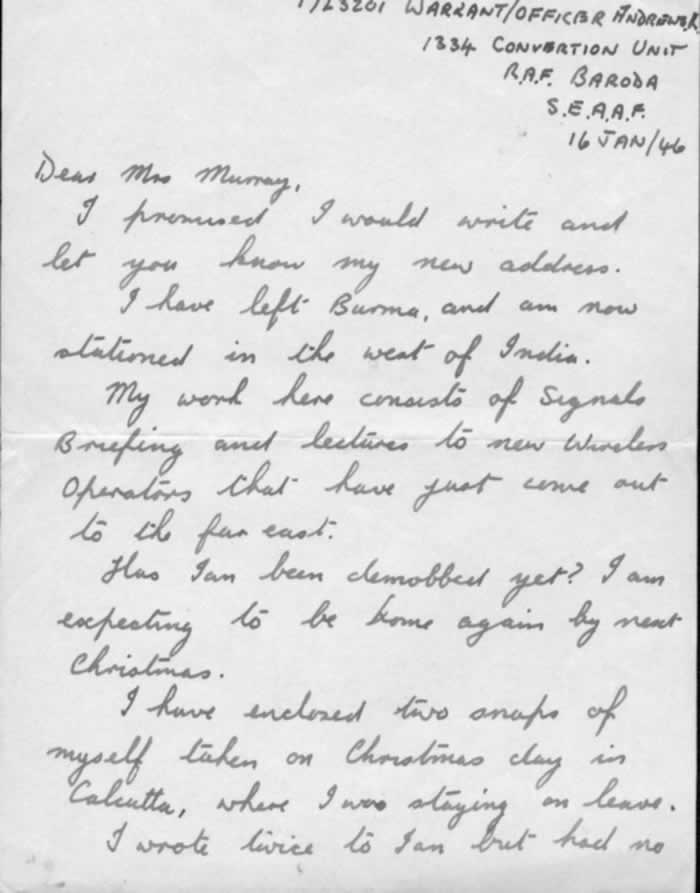 WARRANT/OFFICER ANDREWS.R.
1334 CONVERTION UNIT
R.A.F. BARODA
S.E.A.A.F.
16 JAN/46
Dear Mrs Murray,
I promised I would write and
let you know my new address.
I have left Burma, and am now
stationed in the west of India.
My work here consists of Signals
Briefing and lectures to new Wireless
Operators that have just come out
to the far east.
Has Ian been demobbed yet? I am
expecting to be home again by next
Christmas.
I have enclosed two snaps of
myself taken on Christmas day in
Calcutta, where I was staying on leave.
I wrote twice to Ian but had no